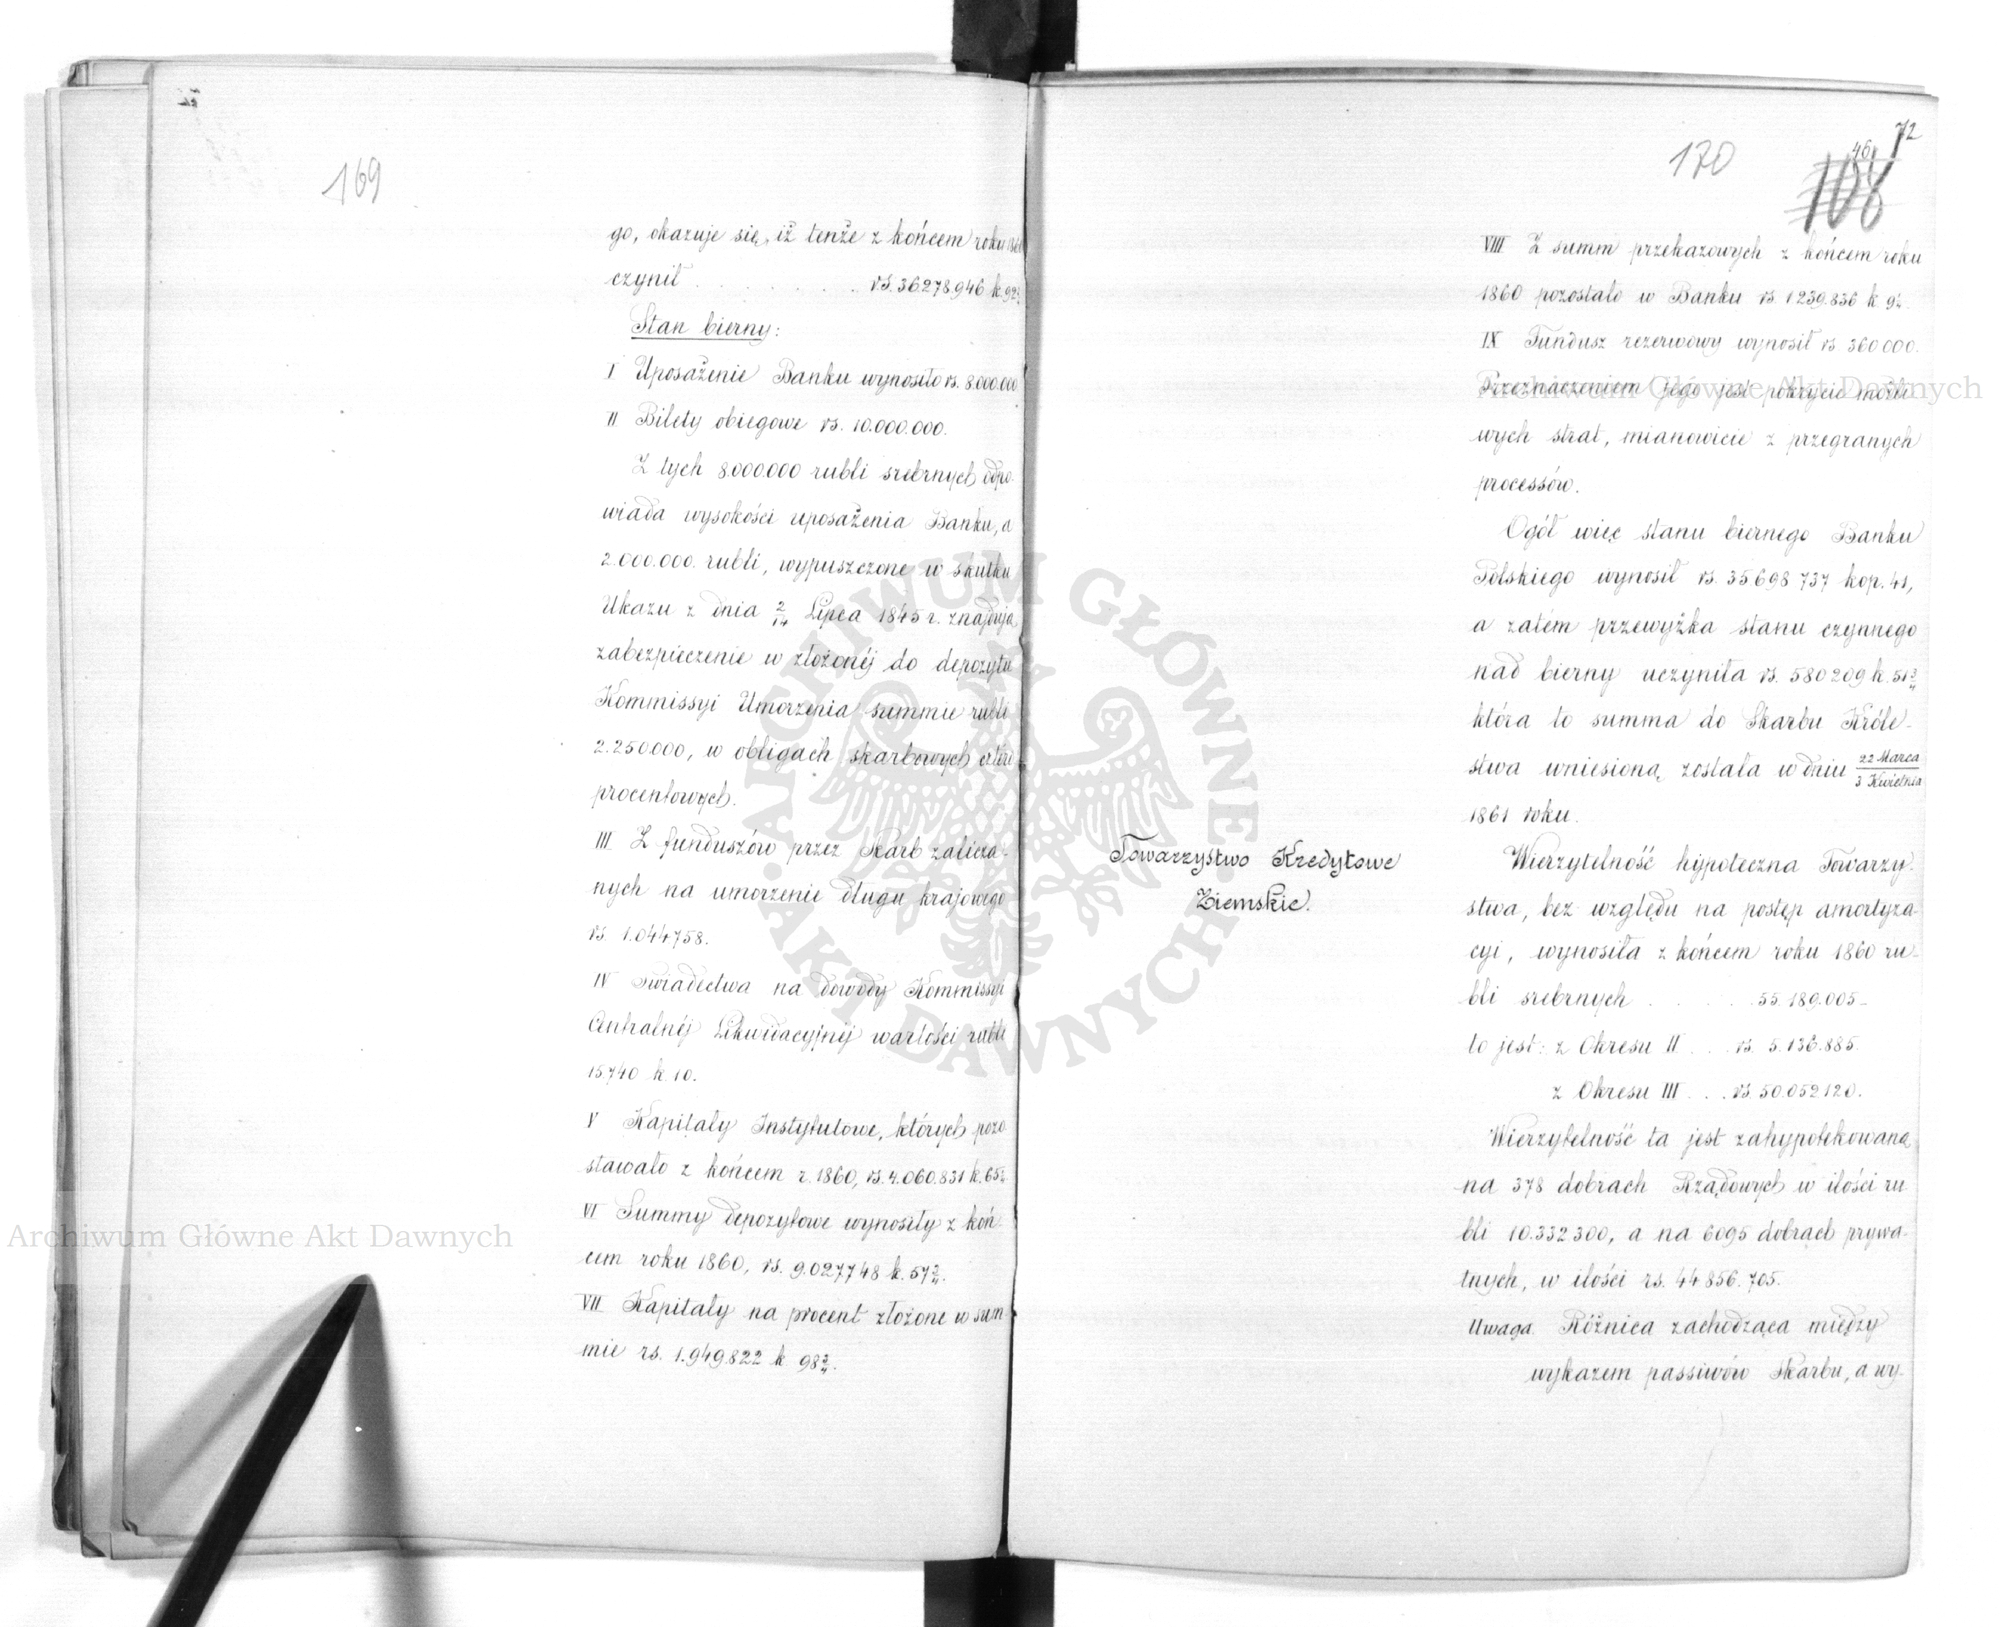 169
go, okazuje się, iż tenże z końcem roku 1860
czynił . . . . . . . rs. 36.278.946 k. 92
Stan bierny:
I Uposażenie Banku wynosiło rs. 8.000.000
II Bilety obiegowe rs. 10.000.000.
Z tych 8.000.000 rubli srebrnych odpo-
wiada wysokości uposażenia Banku, a
2.000.000. rubli, wypuszczone w skutku
Ukazu z dnia 2/14 Lipca 1845 r. znajdują
zabezpieczenie w złożonéj do depozytu
Kommissyi Umorzenia summie rubli
2.250.000, w obligach skarbowych cztéro
procentowych.
III Z funduszów przez Skarb zalicza-
nych na umorzenie długu krajowego
rs. 1.044.758.
IV Świadectwa na dowody Kommissyi
Centralnéj Likwidacyjnéj wartości rubli
15.740 k. 10.
V Kapitały Instytutowe, których pozo
stawało z końcem r. 1860, rs. 4.060.831 k. 65½
VI Summy depozytowe wynosiły z koń-
cem roku 1860, rs. 9.027.748 k. 57¾.
VII Kapitały na procent złożone w sum-
mie rs. 1.949.822 k. 98¾.
170
46
72
108
VIII Z summ przekazowych z końcem roku
1860 pozostało w Banku rs 1 239.836 k 9½.
IX Fundusz rezerwowy wynosił rs 360 000.
Przeznaczeniem jego jest pokrycie możli
wych strat, mianowicie z przegranych
processów.
Ogół więc stanu biernego Banku
Polskiego wynosił rs. 35 698 737 kop. 41,
a zatém przewyżka stanu czynnego
nad bierny uczyniła rs. 580 209 k. 51¾
która to summa do Skarbu Króle-
stwa wniesioną została w dniu 22 Marca/3 Kwietnia
1861 roku.
Towarzystwo Kredytowe
Ziemskie.
Wierzytelność hypoteczna Towarzy-
stwa, bez względu na postęp amortyza-
cyi, wynosiła z końcem roku 1860 ru-
bli srebrnych . . . . . . 55.189.005_
to jest: z Okresu II . . . rs. 5.136.885.
z Okresu III . . . rs. 50.052120.
Wierzytelność ta jest zahypotekowaną
na 378 dobrach Rządowych w ilości ru
bli 10.332 300, a na 6095 dobrach prywa-
tnych, w ilości rs. 44 856.705.
Uwaga. Różnica zachodząca między
wykazem passiwów Skarbu, a wy-
Archiwum Główne Akt Dawnych
Archiwum Główne Akt Dawnych
ARCHIWUM GŁÓWNE
AKT DAWNYCH